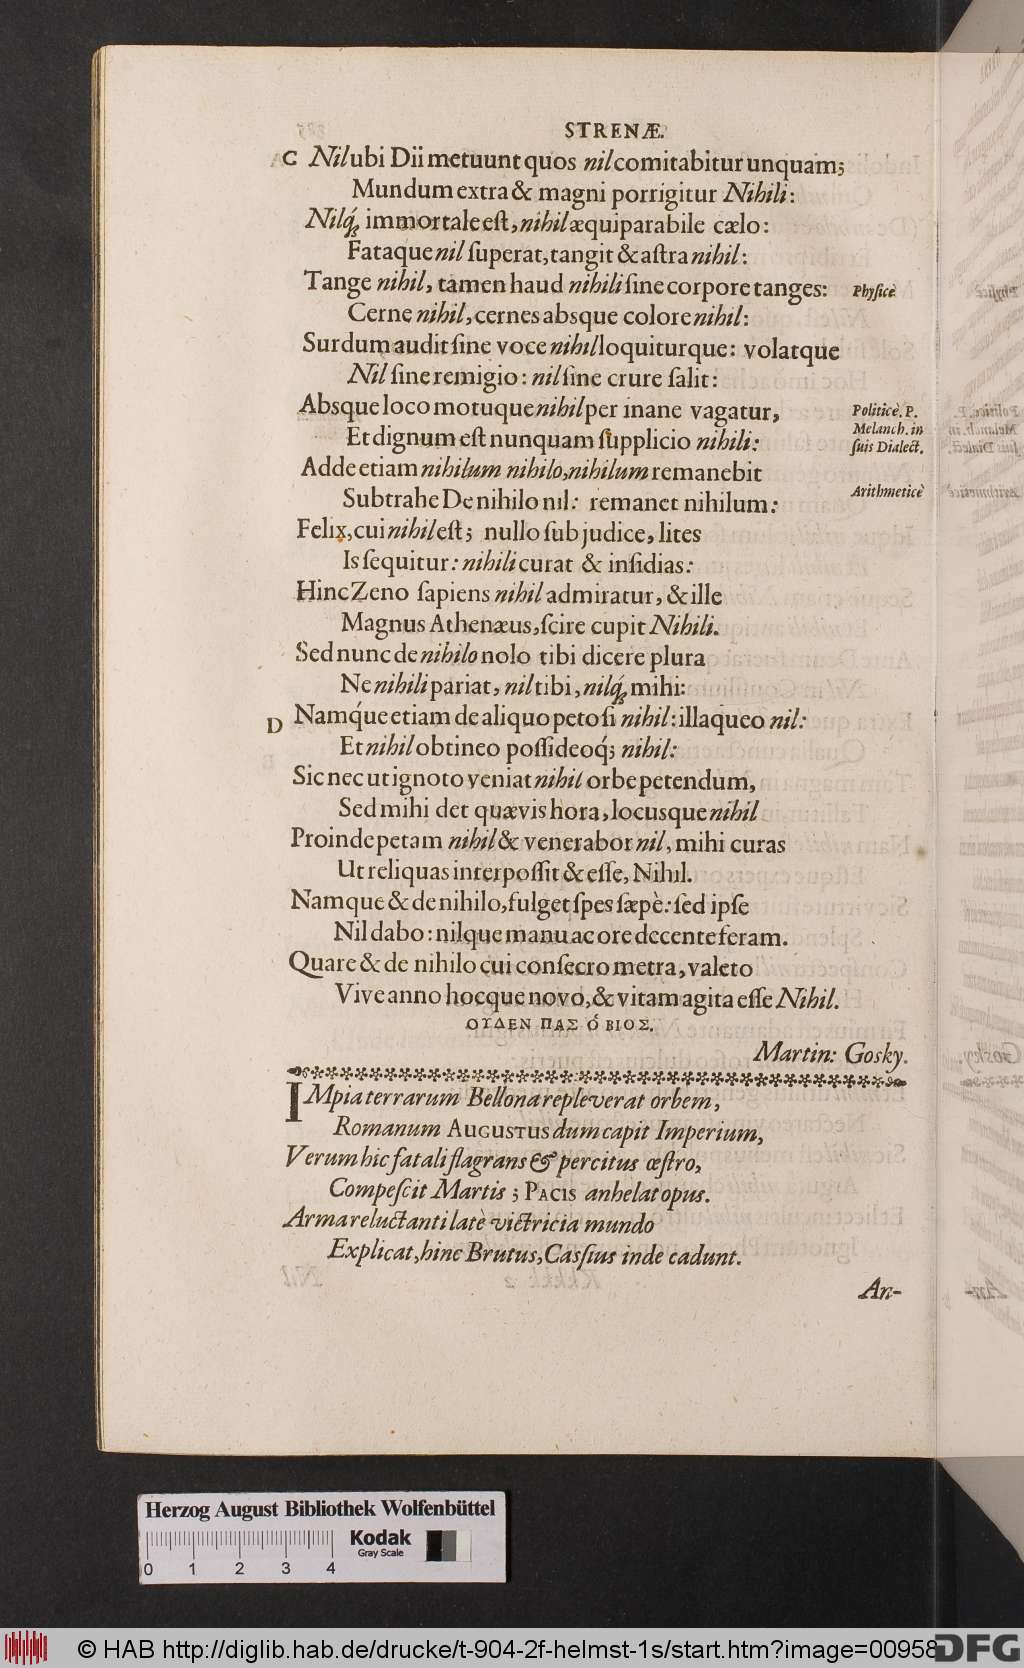 STRENÆ.
C Nil ubi Dii metuunt quos nil comitabitur unquam;
Mundum extra & magni porrigitur Nihili:
Nilq́; immortale est, nihil æquiparabile cælo:
Fataque nil superat, tangit & astra nihil:
Tange nihil, tamen haud nihili sine corpore tanges: Physicè
Cerne nihil, cernes absque colore nihil:
Surdum audit sine voce nihil loquiturque: volatque
Nil sine remigio: nil sine crure salit:
Absque loco motuque nihil per inane vagatur, Politicè. P.
Et dignum est nunquam supplicio nihili: Melanch. in
suis Dialect.
Adde etiam nihilum nihilo, nihilum remanebit
Arithmeticè
Subtrahe De nihilo nil: remanet nihilum:
Felix, cui nihil est; nullo sub judice, lites
Is sequitur: nihili curat & insidias:
Hinc Zeno sapiens nihil admiratur, & ille
Magnus Athenæus, scire cupit Nihili.
Sed nunc de nihilo nolo tibi dicere plura
Ne nihili pariat, nil tibi, nilq́; mihi:
D Namq́ue etiam de aliquo peto si nihil: illaqueo nil:
Et nihil obtineo possideoq́; nihil:
Sic nec ut ignoto veniat nihil orbe petendum,
Sed mihi det quævis hora, locusque nihil
Proinde petam nihil & venerabor nil, mihi curas
Ut reliquas inter possit & esse, Nihil.
Namque & de nihilo, fulget spes sæpè: sed ipse
Nil dabo: nilque manu ac ore decente feram.
Quare & de nihilo cui consecro metra, valeto
Vive anno hocque novo, & vitam agita esse Nihil.
ΟΥΔΕΝ ΠΑΣ Ὁ ΒΙΟΣ.
Martin: Gosky.
IMpia terrarum Bellona repleverat orbem,
Romanum AUGUSTUS dum capit Imperium,
Verum hic fatali flagrans & percitus œstro,
Compescit Martis; PACIS anhelat opus.
Arma reluctanti latè victricia mundo
Explicat, hinc Brutus, Cassius inde cadunt.
An-
Herzog August Bibliothek Wolfenbüttel
Kodak
Gray Scale
0 1 2 3 4
© HAB http://diglib.hab.de/drucke/t-904-2f-helmst-1s/start.htm?image=00958
DFG